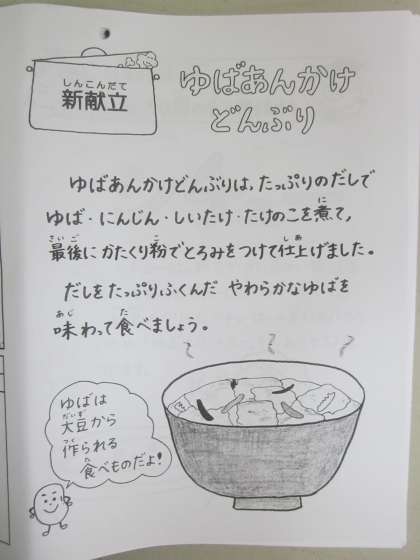 しんこんだて
新献立
ゆばあんかけ
どんぶり
ゆばあんかけどんぶりは、たっぷりのだしで
ゆば・にんじん・しいたけ・たけのこを煮て、
に
最後にかたくり粉でとろみをつけて仕上げました。
さいご
こ
しあ
だしをたっぷりふくんだ やわらかなゆばを
味わって食べましょう。
あじ
た
ゆばは
大豆から
だいず
作られる
つく
食べものだよ!
た